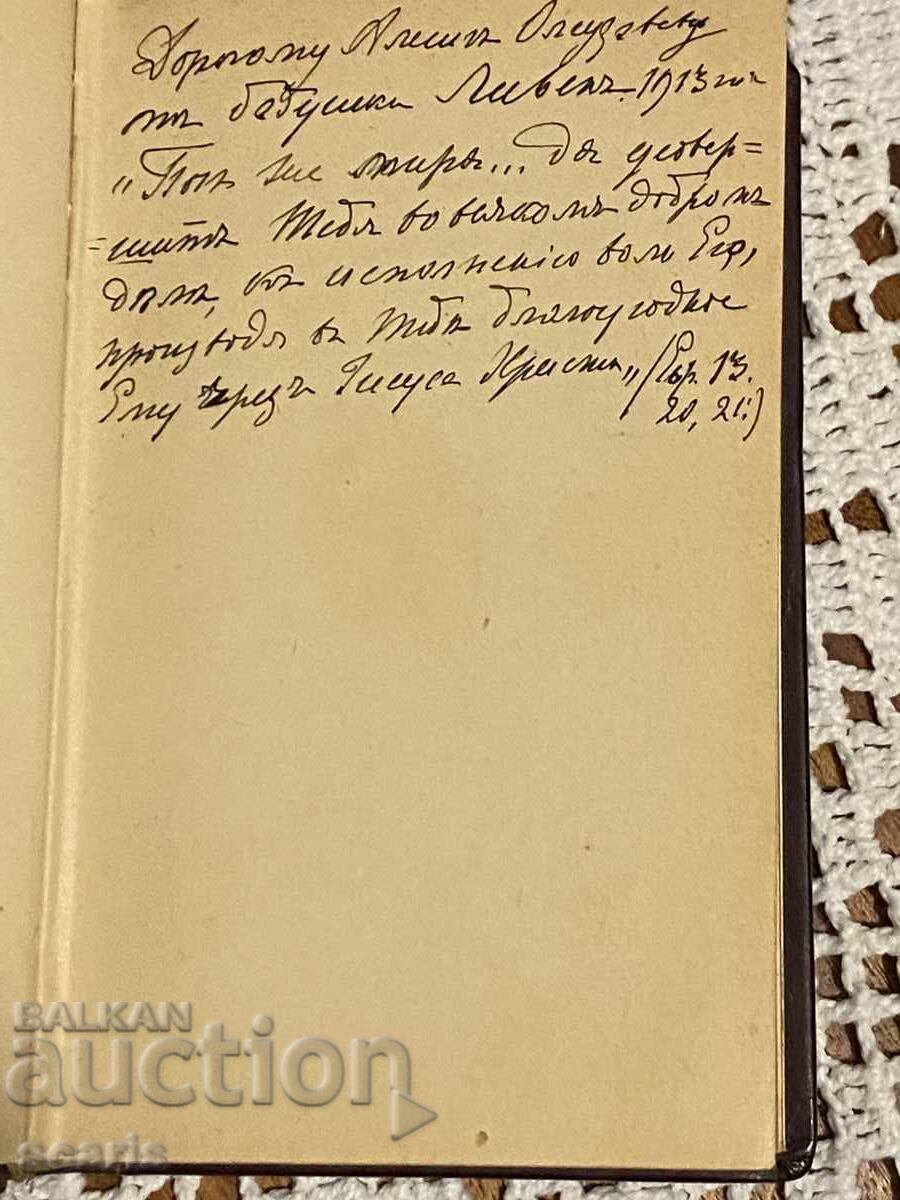 Дорогому Алеше
отъ бабушки Ливенъ. 1913 
"Богъ же мира... да усовер=
=шитъ Тебя во всякомъ добромъ
дѣлѣ, къ исполненію воли Его,
производя въ Тебѣ благоугодное
Ему чрезъ Іисуса Христа" (Евр. 13.
20, 21.)
BALKAN
auction
scaris